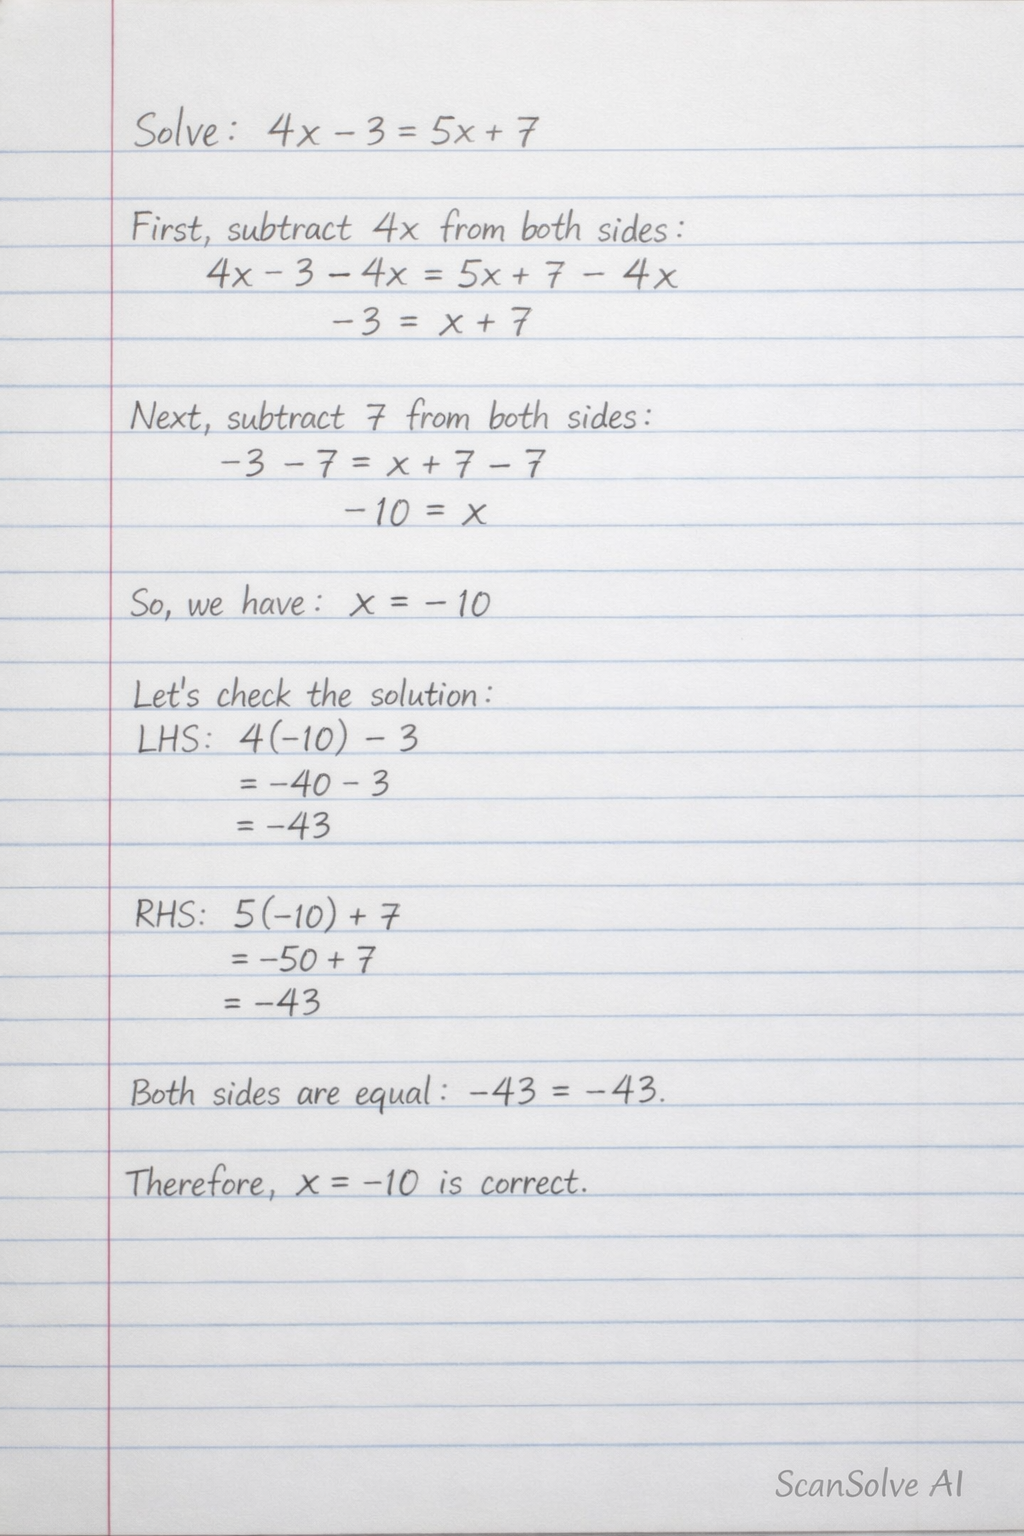 Solve: 4x - 3 = 5x + 7
First, subtract 4x from both sides:
4x - 3 - 4x = 5x + 7 - 4x
-3 = x + 7
Next, subtract 7 from both sides:
-3 - 7 = x + 7 - 7
-10 = x
So, we have: x = -10
Let's check the solution:
LHS: 4(-10) - 3
= -40 - 3
= -43
RHS: 5(-10) + 7
= -50 + 7
= -43
Both sides are equal: -43 = -43.
Therefore, x = -10 is correct.
ScanSolve AI